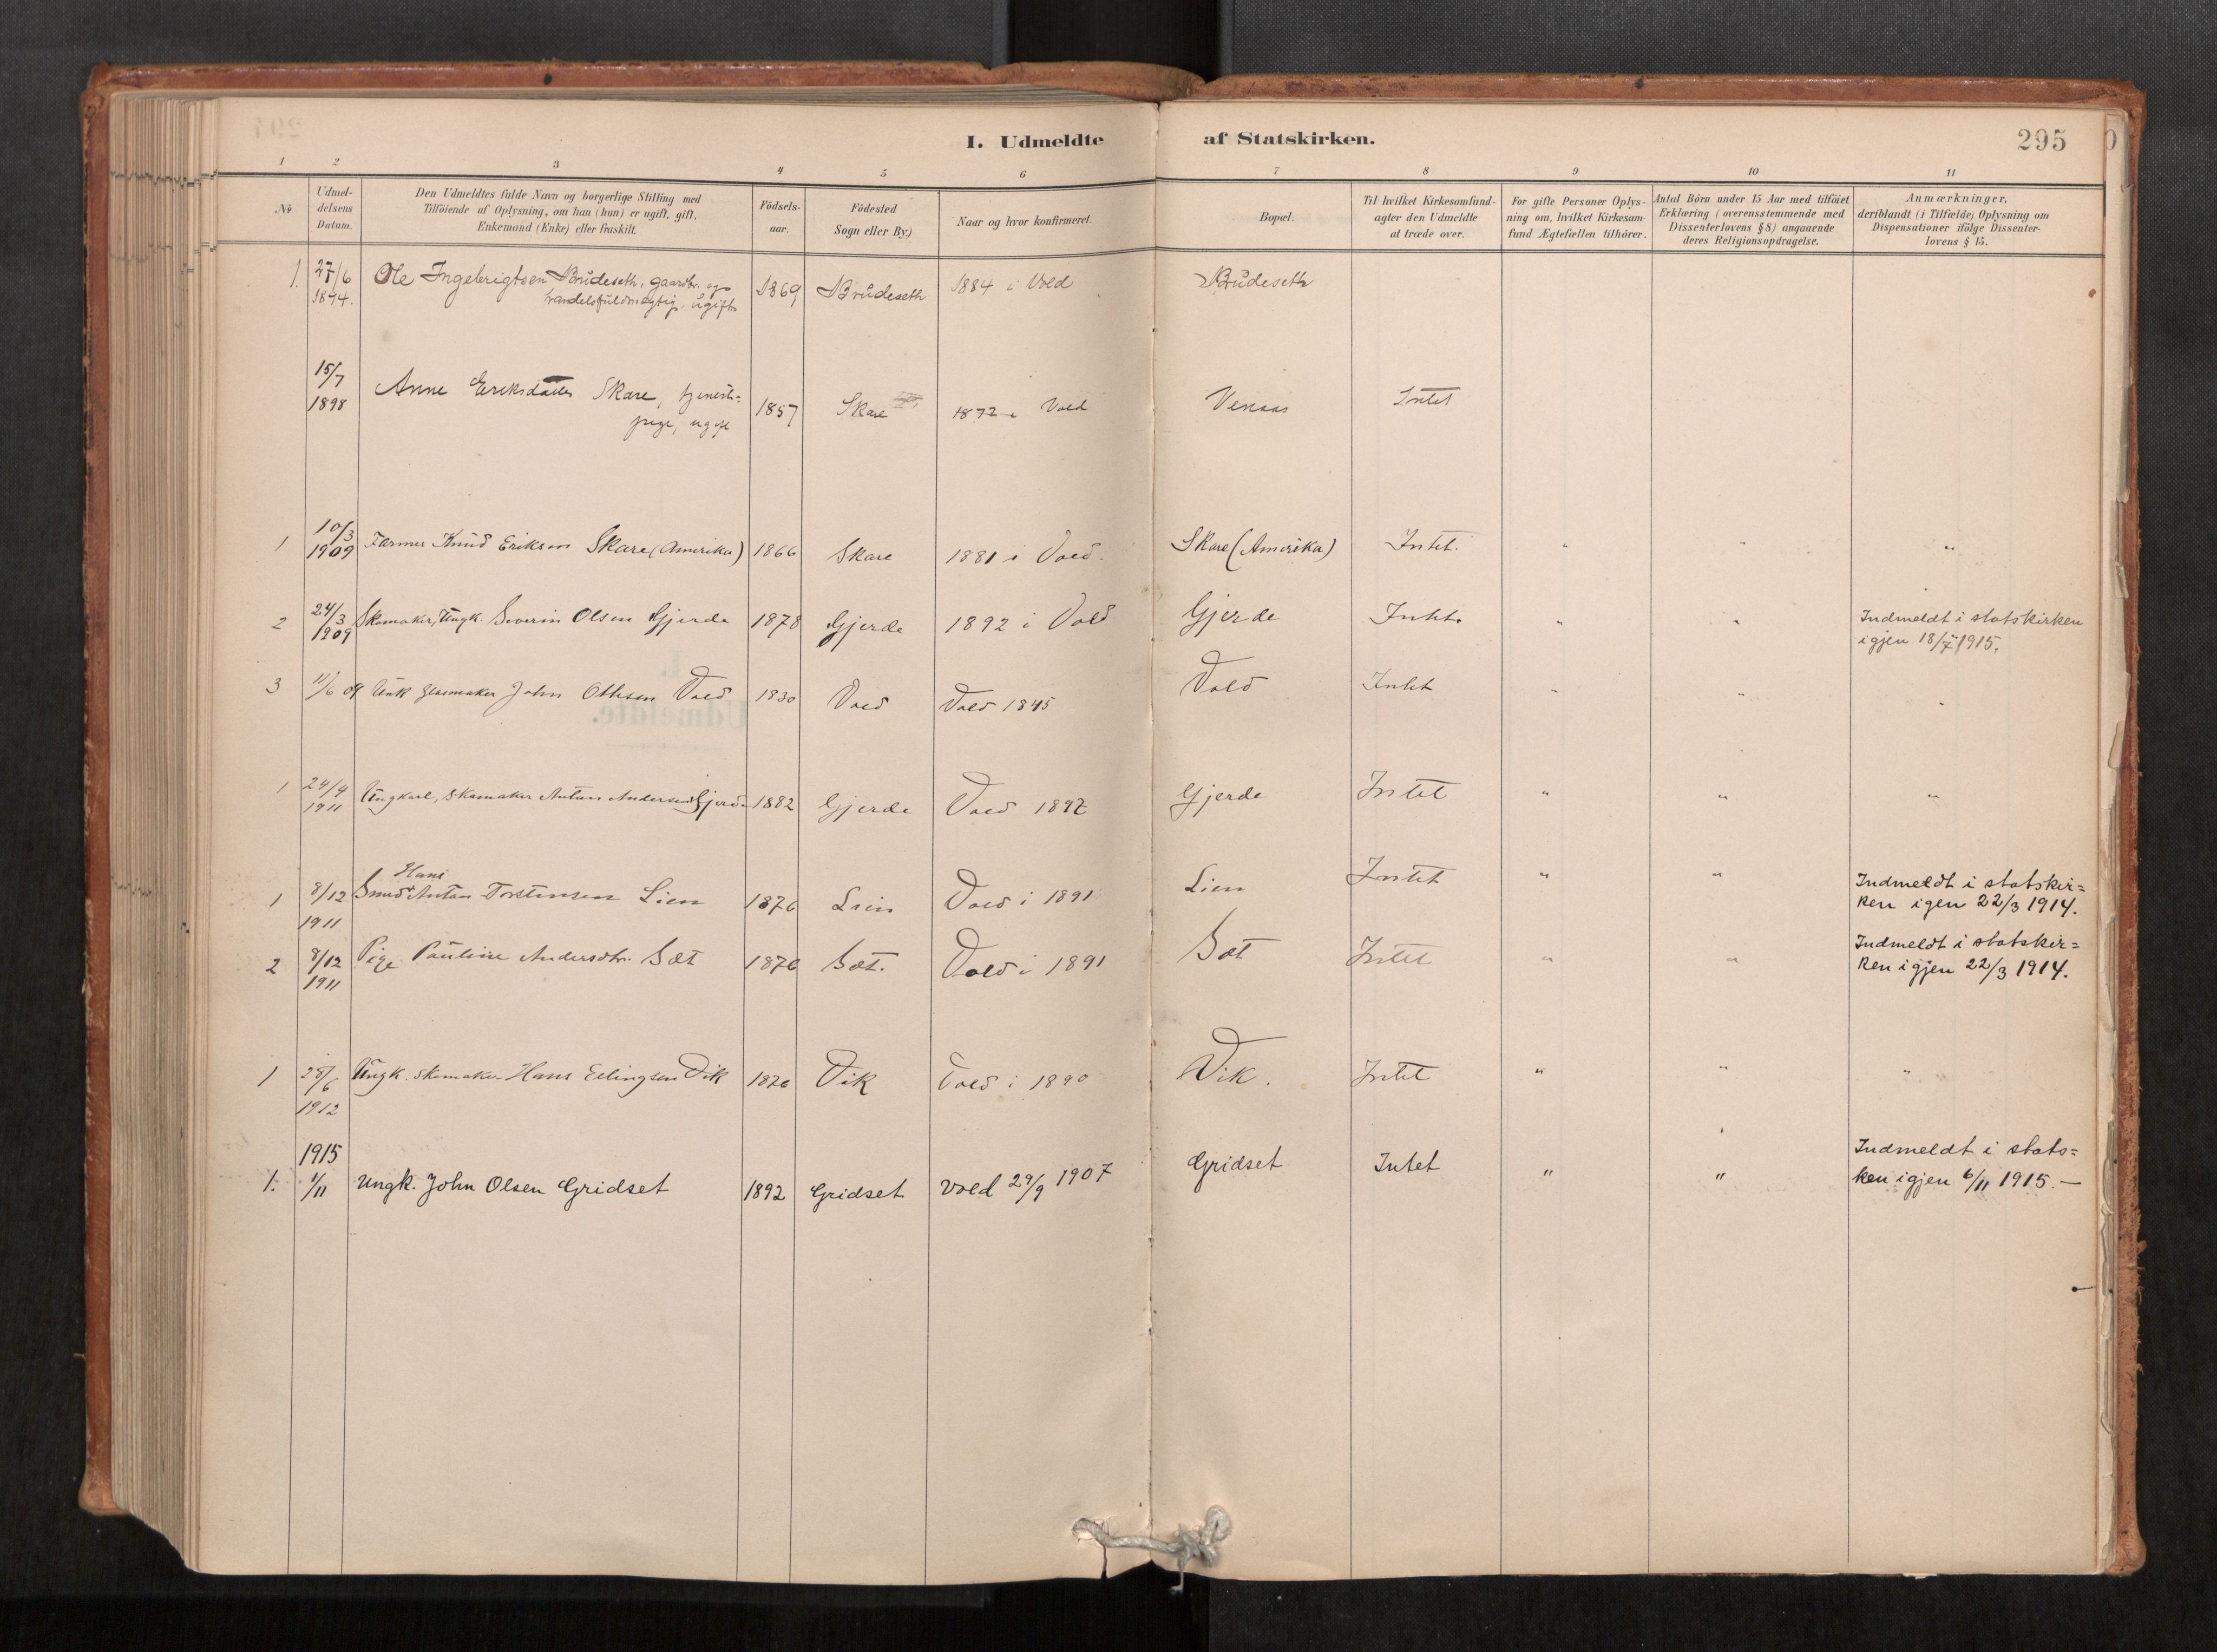 I. Udmeldte af Statskirken. 295
1 2 3 4 5 6 7 8 9 10 11
№
Udmel-
delsens
Datum.
Den Udmeldtes fulde Navn og borgerlige Stilling med
Tilföiende af Oplysning, om han (hun) er ugift, gift,
Enkemand (Enke) eller fraskilt.
Födsels-
aar.
Födested
Sogn eller By.)
Naar og hvor konfirmeret.
Bopæl.
Til hvilket Kirkesamfund-
agter den Udmeldte
at træde over.
For gifte Personer Oplys-
ning om, hvilket Kirkesam-
fund Ægtefællen tilhörer.
Antal Börn under 15 Aar med tilföiet
Erklæring (overensstemmende med
Dissenterlovens § 8) angaaende
deres Religionsopdragelse.
Anmærkninger,
deriblandt (i Tilfælde) Oplysning om
Dispensationer ifölge Dissenter-
lovens § 15.
1. 27/6 Ole Ingebrigtsen Brüdeseth, gaardbr. og 1869 Brüdeseth 1884 i Vold Brüdeseth
1894. handelsfuldmægtig, ugift
15/7
1898 Anne Eriksdatter Skare, tjeneste= 1857 Skare 1872 i Vold Venaas Intet
pige, ugift
1 10/3
1909 Farmer Knud Eriksen Skare (Amerika) 1866 Skare 1881 i Vold. Skare (Amerika) Intet. " " "
2 24/3
1909 Skomaker, Ungk. Severin Olsen Gjerde 1878 Gjerde 1892 i Vold Gjerde Intet. " " Indmeldt i statskirken
igjen 18/7 1915.
3 11/6 09 John Othsen Vold 1830 Vold Vold 1845 Vold Intet " " "
1 24/4
1911 Ungkarl, skomaker Anton Andersen Gjerde 1882 Gjerde Vold 1897 Gjerde Intet " " "
Hans
1 8/12 Smed Anton Torstensen Lien 1876 Lien Vold i 1891 Lien Intet " " Indmeldt i statskir=
1911 ken igen 22/3 1914.
2 8/12 Pige Pauline Andersdtr. Sæt 1876 Sæt. Vold i 1891 Sæt Intet " " Indmeldt i statskir=
1911 ken igjen 22/3 1914.
1 28/6 Ungk. skomaker Hans Ellingsen Vik 1876 Vik Vold i 1890 Vik. Intet " " "
1912
1915 Indmeldt i stats=
1. 4/11 Ungk. John Olsen Gridset 1892 Gridset Vold 29/9 1907 Gridset Intet " " ken igjen 6/11 1915.—